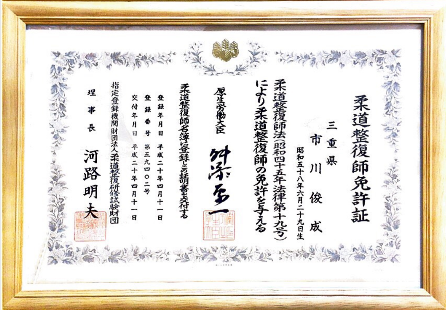 柔道整復師免許証
三重県
市川俊成
昭和五十八年六月二十九日生
柔道整復師法(昭和四十五年法律第十九号)
により柔道整復師の免許を与える
厚生労働大臣
舛添要一
柔道整復師名簿に登録し、この免許証を交付する
登録年月日 平成二十年四月十一日
登録番号 第五九四〇二号
交付年月日 平成二十年四月十一日
指定登録機関財団法人柔道整復研修試験財団
理事長 河路明夫